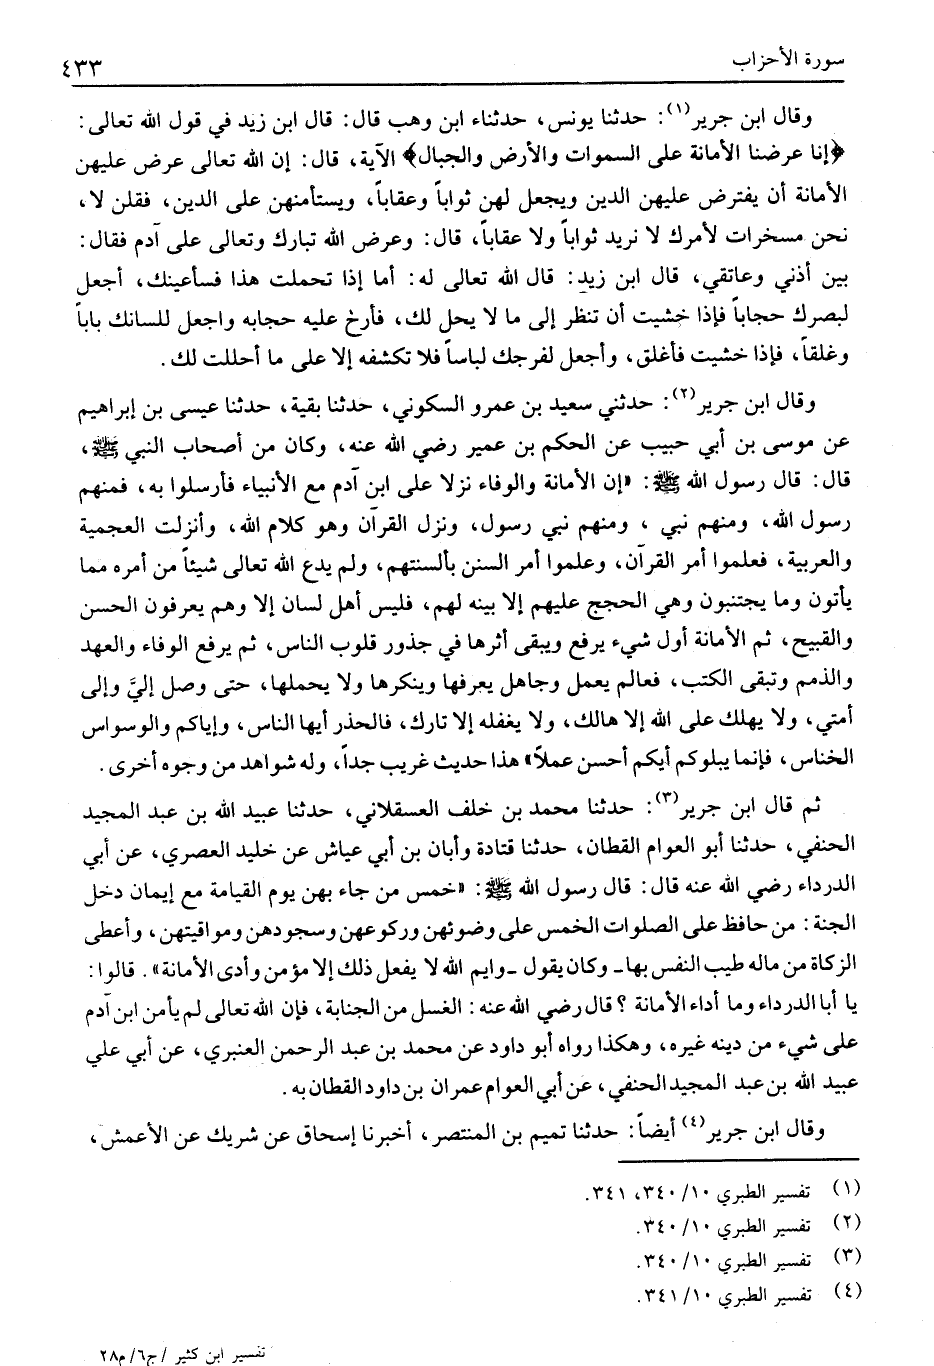 سورة الأحزاب
٤٣٣
وقال ابن جرير(١): حدثنا يونس، حدثناء ابن وهب قال: قال ابن زيد في قول الله تعالى:
﴿إنا عرضنا الأمانة على السموات والأرض والجبال﴾ الآية، قال: إن الله تعالى عرض عليهن
الأمانة أن يفترض عليهن الدين ويجعل لهن ثواباً وعقاباً، ويستأمنهن على الدين، فقلن لا،
نحن مسخرات لأمرك لا نريد ثواباً ولا عقاباً، قال: وعرض الله تبارك وتعالى على آدم فقال:
بين أذني وعاتقي، قال ابن زيد: قال الله تعالى له: أما إذا تحملت هذا فسأعينك، أجعل
لبصرك حجاباً فإذا خشيت أن تنظر إلى ما لا يحل لك، فأرخ عليه حجابه واجعل للسانك باباً
وغلقاً، فإذا خشيت فأغلق، وأجعل لفرجك لباساً فلا تكشفه إلا على ما أحللت لك.
وقال ابن جرير(٢): حدثني سعيد بن عمرو السكوني، حدثنا بقية، حدثنا عيسى بن إبراهيم
عن موسى بن أبي حبيب عن الحكم بن عمير رضي الله عنه، وكان من أصحاب النبي ﷺ،
قال: قال رسول الله ﷺ: «إن الأمانة والوفاء نزلا على ابن آدم مع الأنبياء فأرسلوا به، فمنهم
رسول الله، ومنهم نبي ، ومنهم نبي رسول، ونزل القرآن وهو كلام الله، وأنزلت العجمية
والعربية، فعلموا أمر القرآن، وعلموا أمر السنن بألسنتهم، ولم يدع الله تعالى شيئاً من أمره مما
يأتون وما يجتنبون وهي الحجج عليهم إلا بينه لهم، فليس أهل لسان إلا وهم يعرفون الحسن
والقبيح، ثم الأمانة أول شيء يرفع ويبقى أثرها في جذور قلوب الناس، ثم يرفع الوفاء والعهد
والذمم وتبقى الكتب، فعالم يعمل وجاهل يعرفها وينكرها ولا يحملها، حتى وصل إليَّ وإلى
أمتي، ولا يهلك على الله إلا هالك، ولا يغفله إلا تارك، فالحذر أيها الناس، وإياكم والوسواس
الخناس، فإنما يبلوكم أيكم أحسن عملاً» هذا حديث غريب جداً، وله شواهد من وجوه أخرى.
ثم قال ابن جرير(٣): حدثنا محمد بن خلف العسقلاني، حدثنا عبيد الله بن عبد المجيد
الحنفي، حدثنا أبو العوام القطان، حدثنا قتادة وأبان بن أبي عياش عن خليد العصري، عن أبي
الدرداء رضي الله عنه قال: قال رسول الله ﷺ: «خمس من جاء بهن يوم القيامة مع إيمان دخل
الجنة: من حافظ على الصلوات الخمس على وضوئهن وركوعهن وسجودهن ومواقيتهن، وأعطى
الزكاة من ماله طيب النفس بها- وكان يقول -وايم الله لا يفعل ذلك إلا مؤمن وأدى الأمانة». قالوا:
يا أبا الدرداء وما أداء الأمانة ؟ قال رضي الله عنه: الغسل من الجنابة، فإن الله تعالى لم يأمن ابن آدم
على شيء من دينه غيره، وهكذا رواه أبو داود عن محمد بن عبد الرحمن العنبري، عن أبي علي
عبيد الله بن عبد المجيد الحنفي، عن أبي العوام عمران بن داود القطان به.
وقال ابن جرير(٤) أيضاً: حدثنا تميم بن المنتصر، أخبرنا إسحاق عن شريك عن الأعمش،
(١) تفسير الطبري ١٠/ ٣٤٠، ٣٤١.
(٢) تفسير الطبري ١٠/ ٣٤٠.
(٣) تفسير الطبري ١٠/ ٣٤٠.
(٤) تفسير الطبري ١٠/ ٣٤١.
تفسير ابن كثير /ج٦/ م٢٨